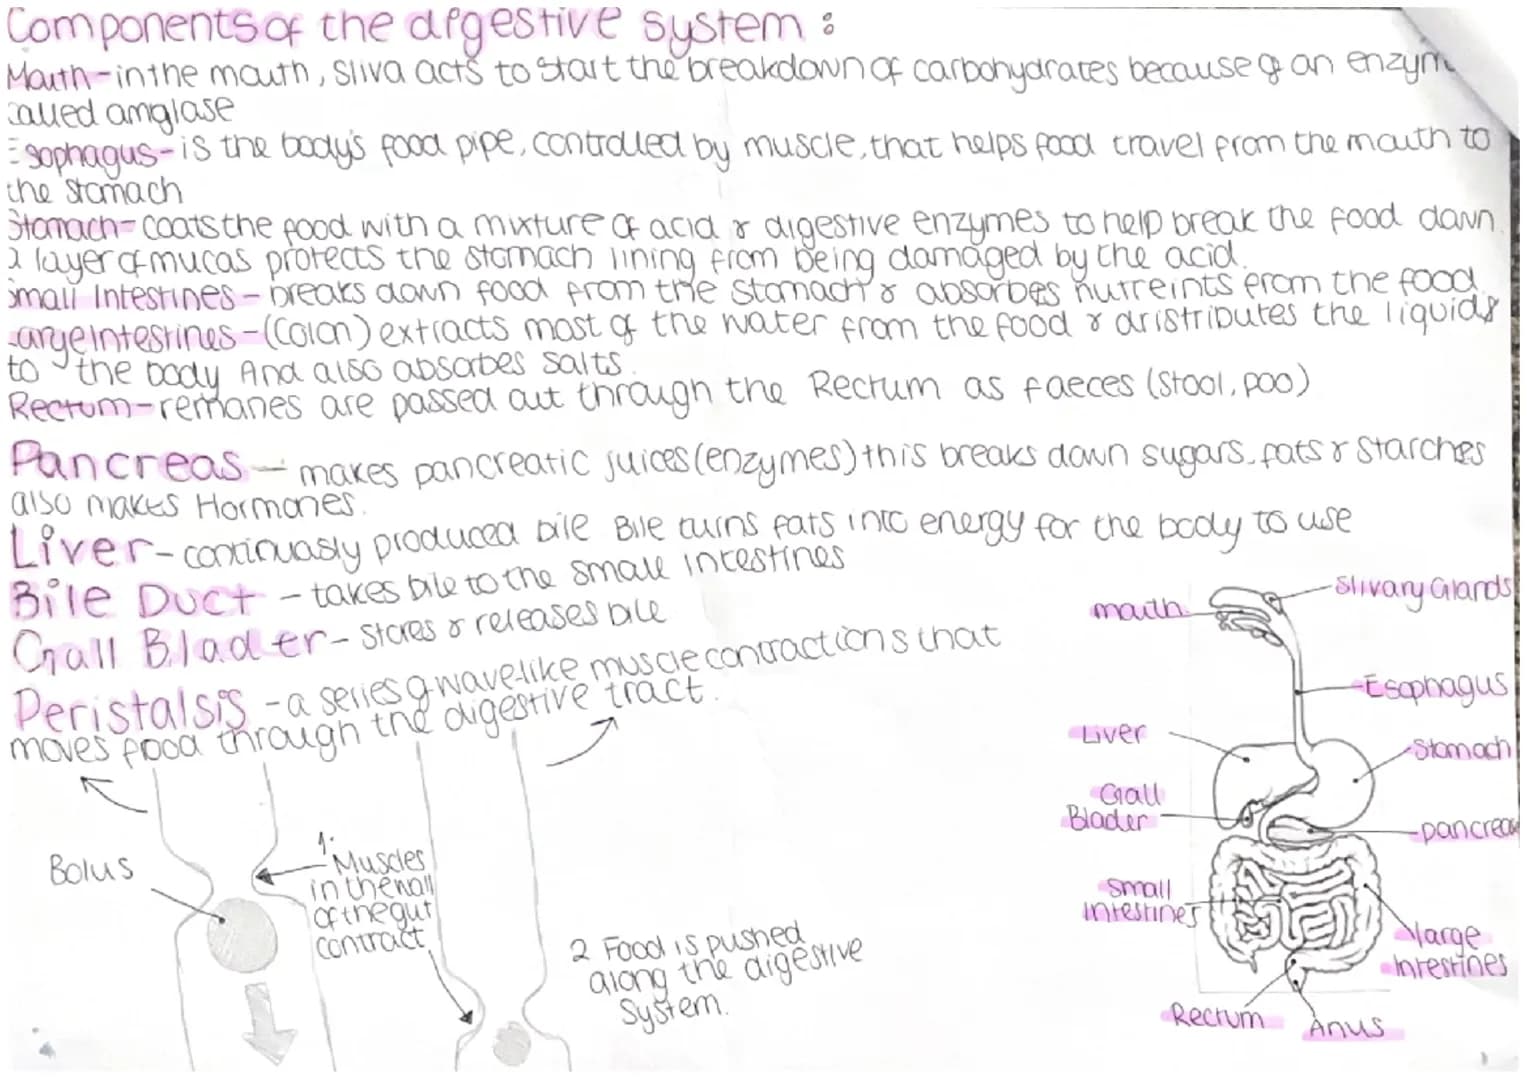 Components of the digestive system :
Mouth - in the mouth, sliva acts to start the breakdown of carbohydrates because of an enzym
called amglase
Esophagus - is the body's food pipe, controlled by muscle, that helps food travel from the mouth to
the stomach
Stomach - coats the food with a mixture of acid & digestive enzymes to help break the food down.
a layer of mucas protects the stomach lining from being damaged by the acid.
Small Intestines - breaks down food from the stomach & absorbes nutreints from the food.
Large Intestines - (Colon) extracts most of the water from the food & dristributes the liquids
to the body And also absorbes salts.
Rectum - remanes are passed out through the Rectum as faeces (stool, poo)
Pancreas - makes pancreatic juices (enzymes) this breaks down sugars, fats & starches
also makes Hormones.
Liver - continuosly produced bile Bile turns fats into energy for the body to use
Bile Duct - takes bile to the small intestines
Gall Blader - stores & releases bile
Peristalsis - a series of wave-like muscle contractions that
moves food through the digestive tract.
Bolus
1.
Muscles
in the wall
of the gut
contract
2 Food is pushed
along the digestive
system.
mouth
Slivary Glands
Esophagus
Liver
Stomach
Gall
Blader
pancreas
Small
intestines
large
intestines
Rectum
Anus